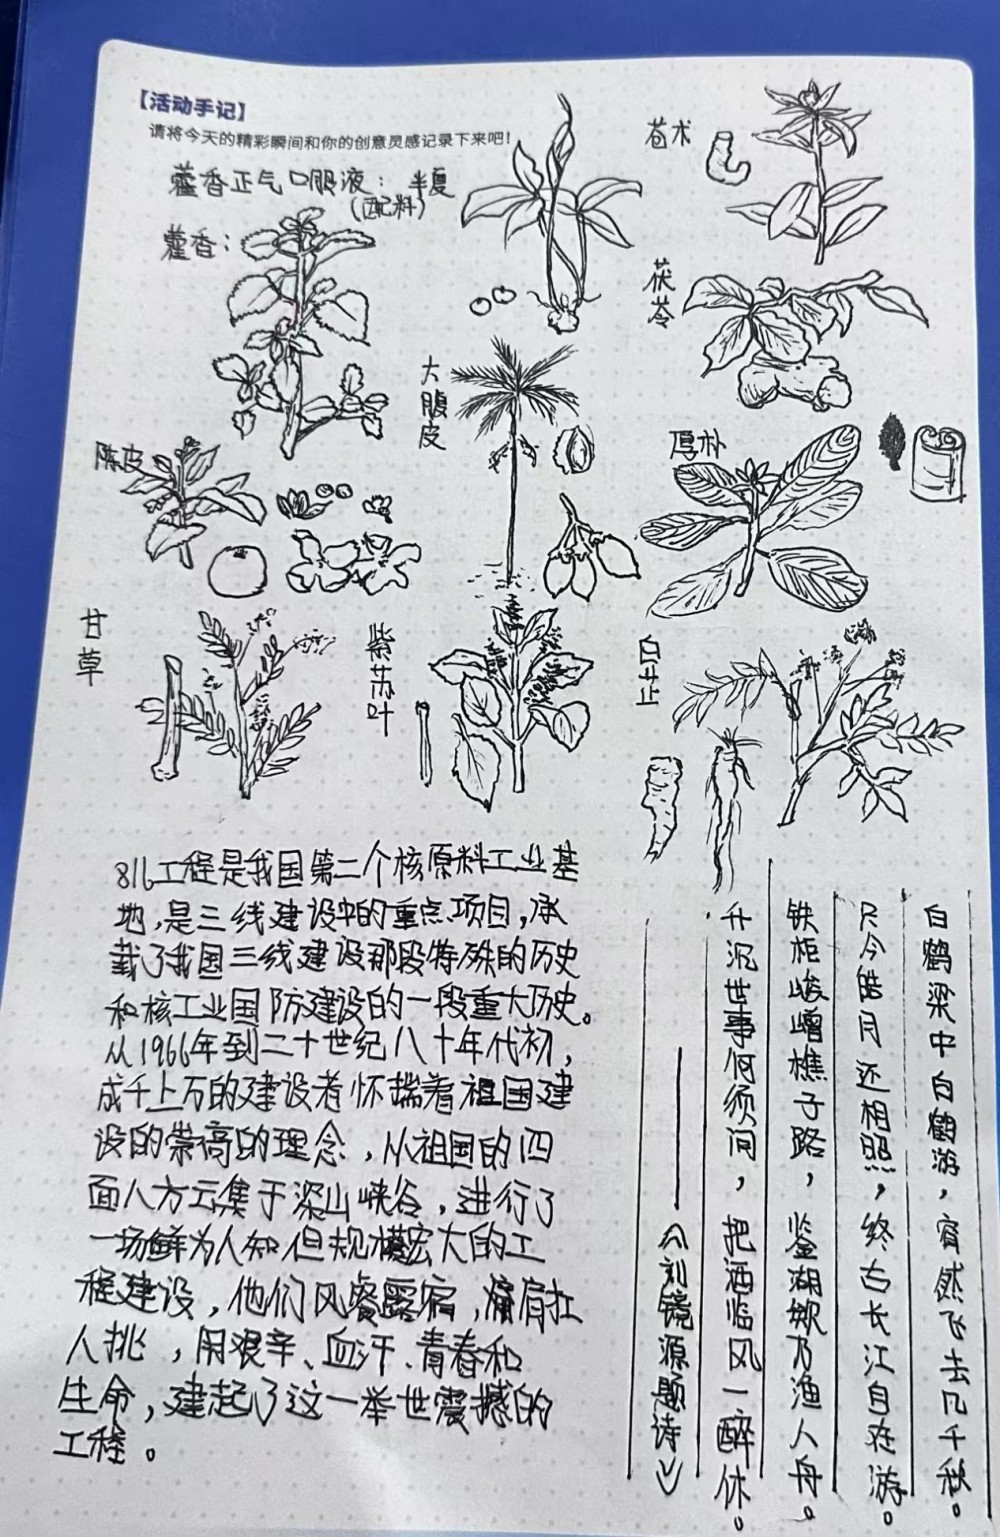 【活动手记】
请将今天的精彩瞬间和你的创意灵感记录下来吧！
藿香正气口服液：
(配料)
半夏
苍术
藿香：
茯苓
大腹皮
陈皮
厚朴
甘草
紫苏叶
白芷
816工程是我国第二个核原料工业基
地，是三线建设中的重点项目，承
载了我国三线建设那段特殊的历史
和核工业国防建设的一段重大历史。
从1966年到二十世纪八十年代初，
成千上万的建设者怀揣着祖国建
设的崇高的理念，从祖国的四
面八方云集于深山峡谷，进行了
一场鲜为人知但规模宏大的工
程建设，他们风餐露宿，肩扛
人挑，用艰辛、血汗、青春和
生命，建起了这一举世震撼的
工程。
白鹤梁中白鹤游，窅然飞去几千秋。
只今皓月还相照，终古长江自在游。
铁柜峻嶒樵子路，鉴湖欸乃渔人舟。
升沉世事何须问，把酒临风一醉休。
——《刘镜源题诗》